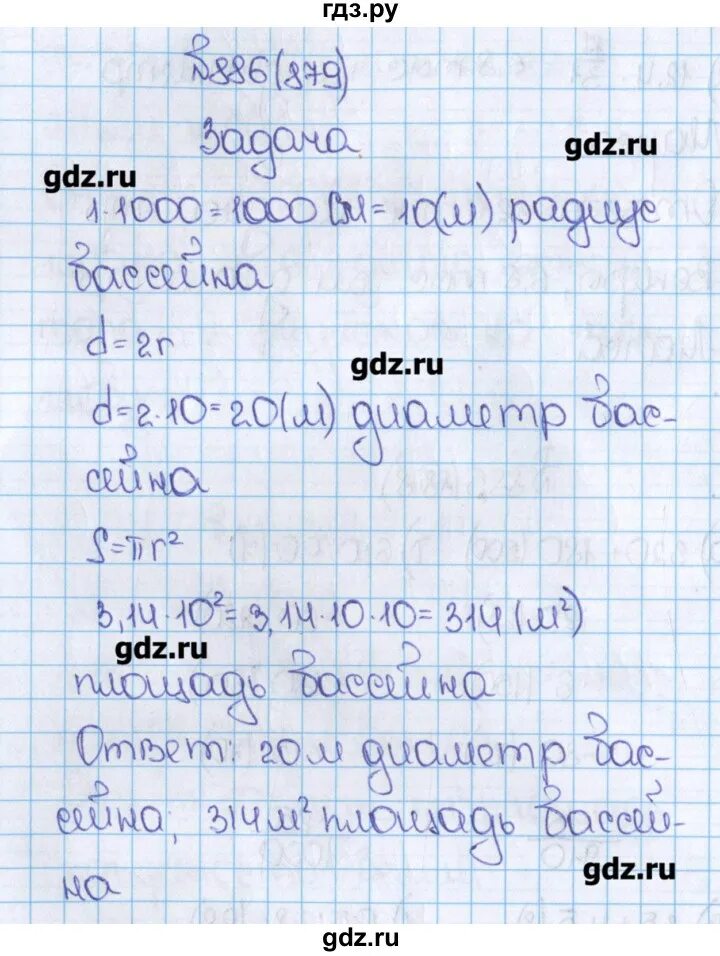 гдз.ру
№886(879)
Задача
gdz.ru
gdz.ru
1·1000=1000 см=10(м) радиус
бассейна
d=2r
gdz.ru
d=2·10=20(м) диаметр бас-
сейна
S=πr²
3,14·10²=3,14·10·10=314(м²)
gdz.ru
площадь бассейна
Ответ: 20м диаметр бас-
сейна; 314м² площадь бассей-
gdz.ru
на
gdz.ru